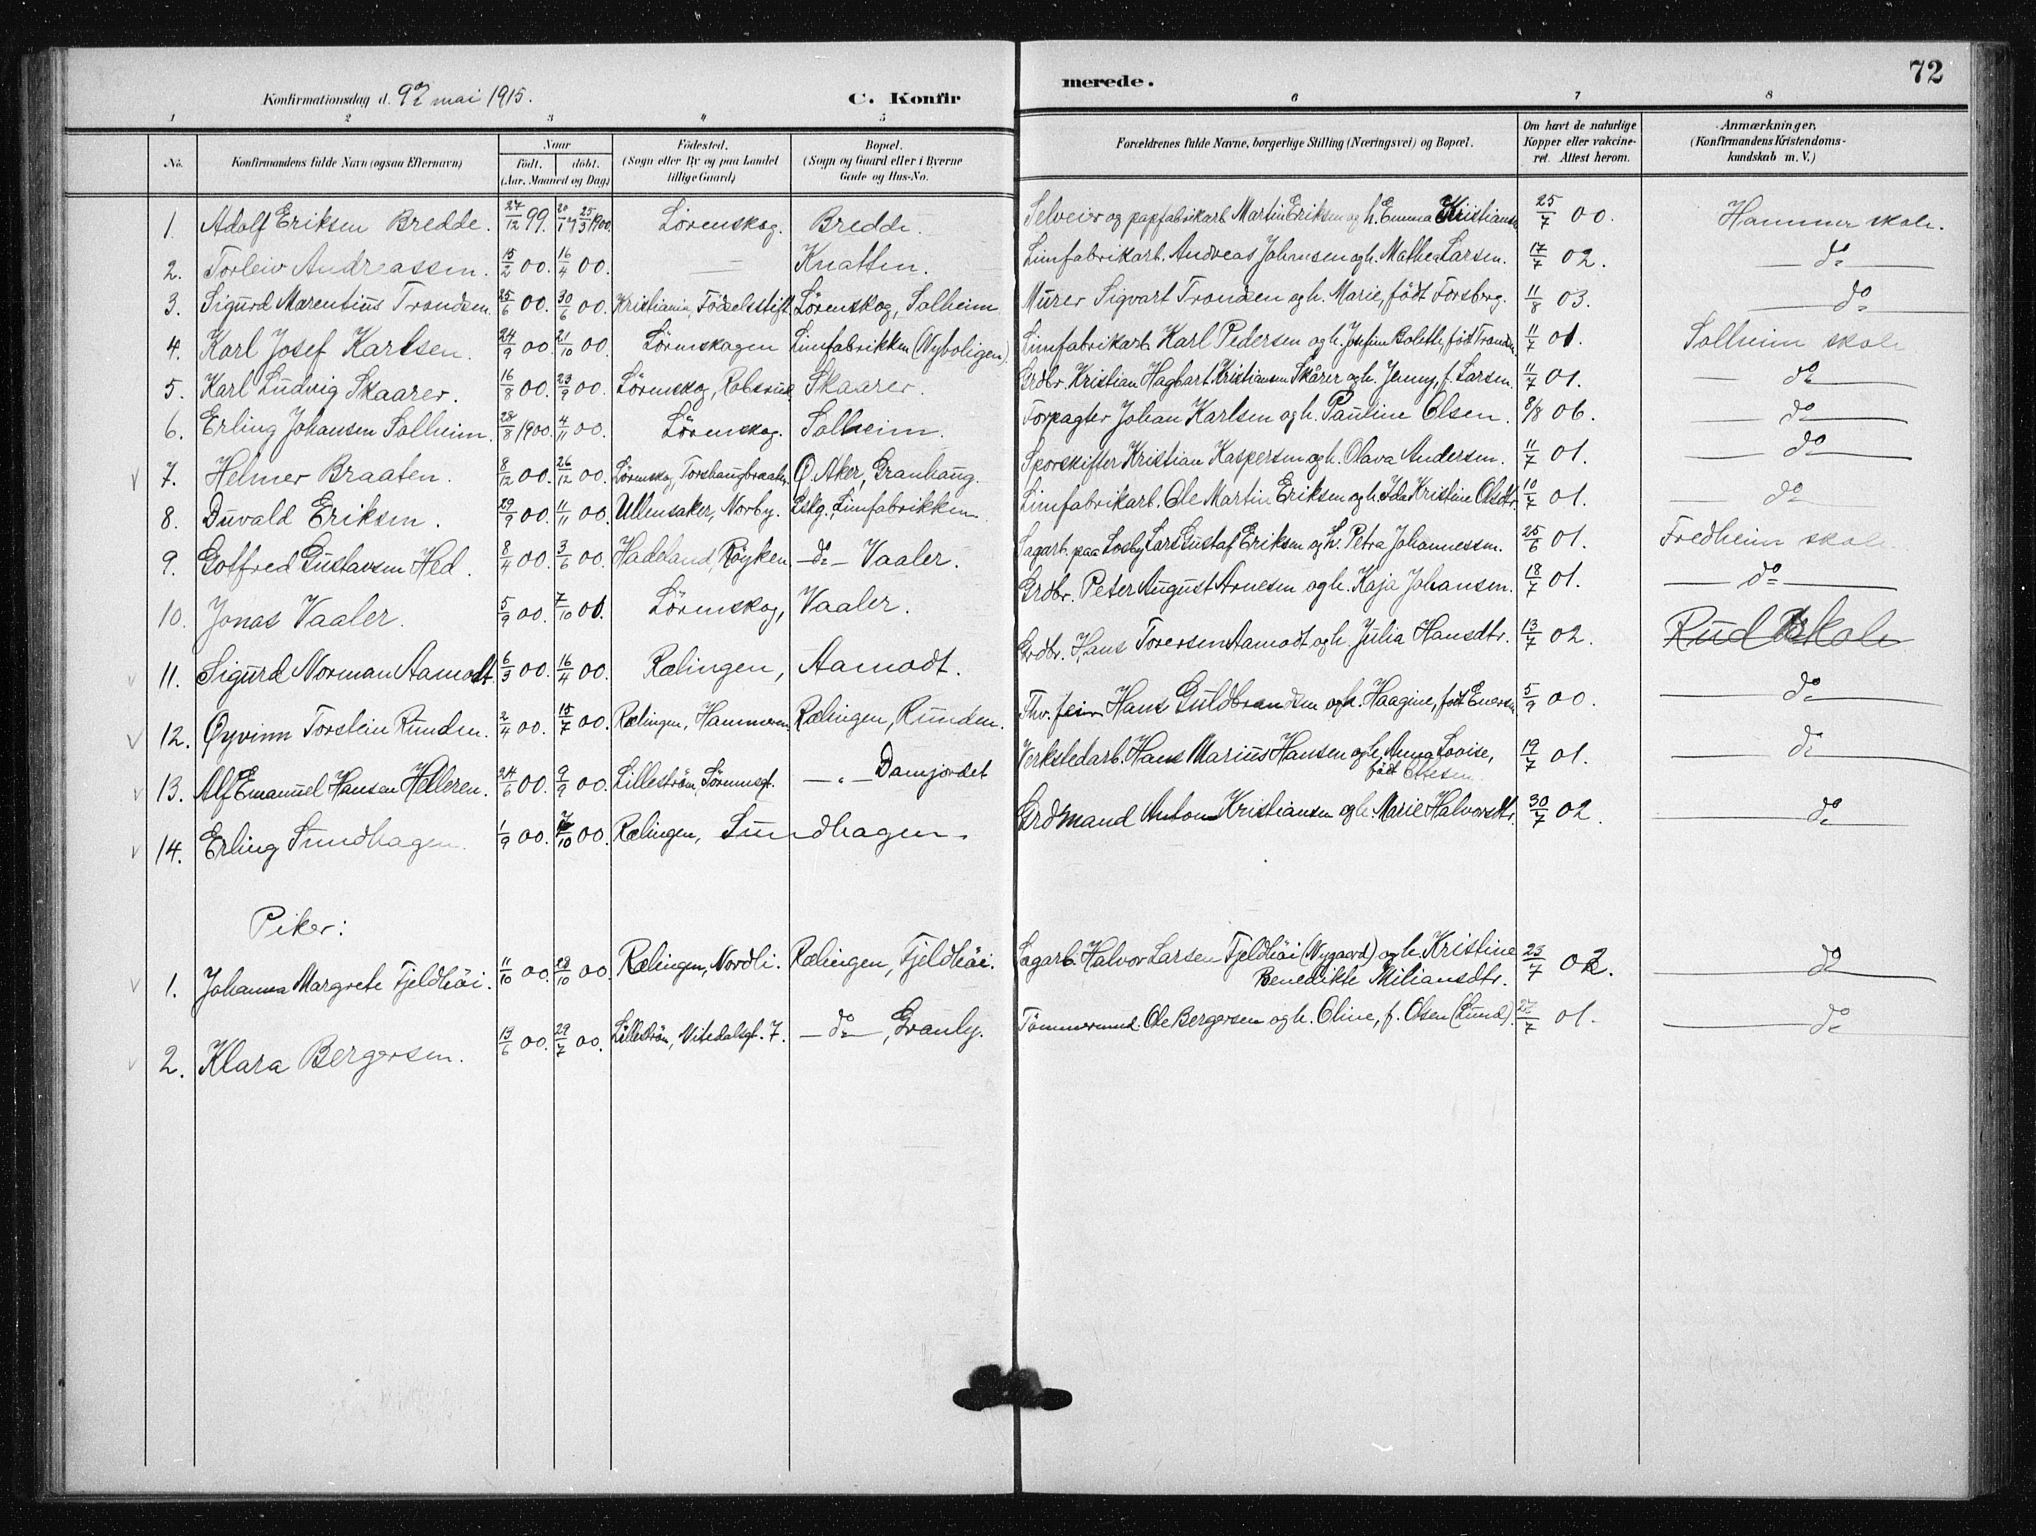 72
Konfirmationsdag d. 9de mai 1915. C. Konfir merede.
1 2 3 4 5 6 7 8
No. Konfirmandens fulde Navn (ogsaa Efternavn) Naar født. døbt. (Aar, Maaned og Dag) Fødested. (Sogn eller By og paa Landet tillige Gaard) Bopæl. (Sogn og Gaard eller i Byerne Gade og Hus-No. Forældrenes fulde Navne, borgerlige Stilling (Næringsvei) og Bopæl. Om havt de naturlige Kopper eller vakcineret. Attest herom. Anmærkninger. (Konfirmandens Kristendomskundskab m. V.)
1. Adolf Eriksen Bredde. 27/12 99. 20/1 25/3 1900. Lörenskog. Bredde. Selveier og papfabrikarb. Martin Eriksen og h. Emma Kristiansen 25/7 00. Hammer skole.
2. Torleiv Andreassen. 15/2 00. 16/4 00. — Knatten. Limfabrikarb. Andreas Johansen og h. Mathea Larsen. 17/7 02. — do —
3. Sigurd Marentius Trondsen 25/6 00. 30/6 00. Kristiania, Födselsstift. Lörenskog, Solheim Murer Sigvart Trondsen og h. Marie, födt Forsberg. 11/8 03. — do —
4. Karl Josef Karlsen. 24/9 00 21/10 00. Lörenskogen Limfabrikken (Nyboligen) Limfabrikarb. Karl Pedersen og h. Josefine Bolette, född Trondsen 11/7 01. Solheim skole
5. Karl Ludvig Skaarer. 16/8 00. 23/9 00. Lörenskog, Robsrud Skaarer. Grdbr. Kristian Hagbart Kristiansen Skårer og h. Jenny, f. Larsen. 11/7 01. — do —
6. Erling Johansen Solheim. 28/8 1900. 4/11 00. Lörenskog. Solheim. Forpagter Johan Karlsen og h. Pauline Olsen. 8/8 06. — do —
7. Helmer Braaten. 8/12 00. 26/12 00. Lörenskog, Torshaugbraaten. Ö. Aker, Granhaug. Sporskifter Kristian Kaspersen og h. Olava Andersen. 11/7 01. — do —
8. Duvald Eriksen. 29/9 00. 11/11 00. Ullensaker, Norby. Lskg., Limfabrikken Limfabrikarb. Ole Martin Eriksen og h. Ida Kristine Olsdtr. 10/7 01. — do —
9. Gotfred Gustavsen Hed. 8/4 00. 3/6 00. Hadeland, Röyken — do — Vaaler. Sagarb. paa Losby Lars Gustaf Eriksen og h. Petra Johannessen. 25/6 01. Fredheim skole
10. Jonas Vaaler. 5/9 00. 7/10 00. Lörenskog, Vaaler. Grdbr. Peter August Arnesen og h. Kaja Johansen. 18/7 01. — do —
11. Sigurd Norman Aamodt. 6/3 00. 16/4 00. Rælingen, Aamodt. Grdbr. Hans Toversen Aamodt og h. Julia Hansdtr. 13/7 02. Rud skole
12. Øyvinn Torstein Runden. 2/4 00. 15/7 00. Rælingen, Hammeren. Rælingen, Runden. Thv. feier Hans Guldbrandsen og h. Haagine, født Enersen 5/9 00. — do —
13. Alf Emanuel Hansen Helleren. 24/6 00. 9/9 00. Lilleström, Lörensgt. — „ — Damjordet Verkstedarb. Hans Marius Hansen og h. Anna Lovise, født Ottesen 19/7 01. — do —
14. Erling Sundhagen. 1/9 00. 7/10 00. Rælingen, Sundhagen. Grdmand Anton Kristiansen og h. Marie Halvorsdtr. 30/7 02. — do —
Piker:
1. Johanna Margrete Fjeldhöi. 11/10 00. 28/10 00. Rælingen, Nordli. Rælingen, Fjeldhöi. Sagarb. Halvor Larsen Fjeldhöi (Nygaard) og h. Kristine Benedikte Miliansdtr. 23/7 02. — do —
2. Klara Bergersen. 13/6 00. 29/7 00. Lilleström, Nitedalsgt. 7. — do —, Granly. Tömmermand Ole Bergersen og h. Oline, f. Olsen (Lund). 27/7 01. — do —